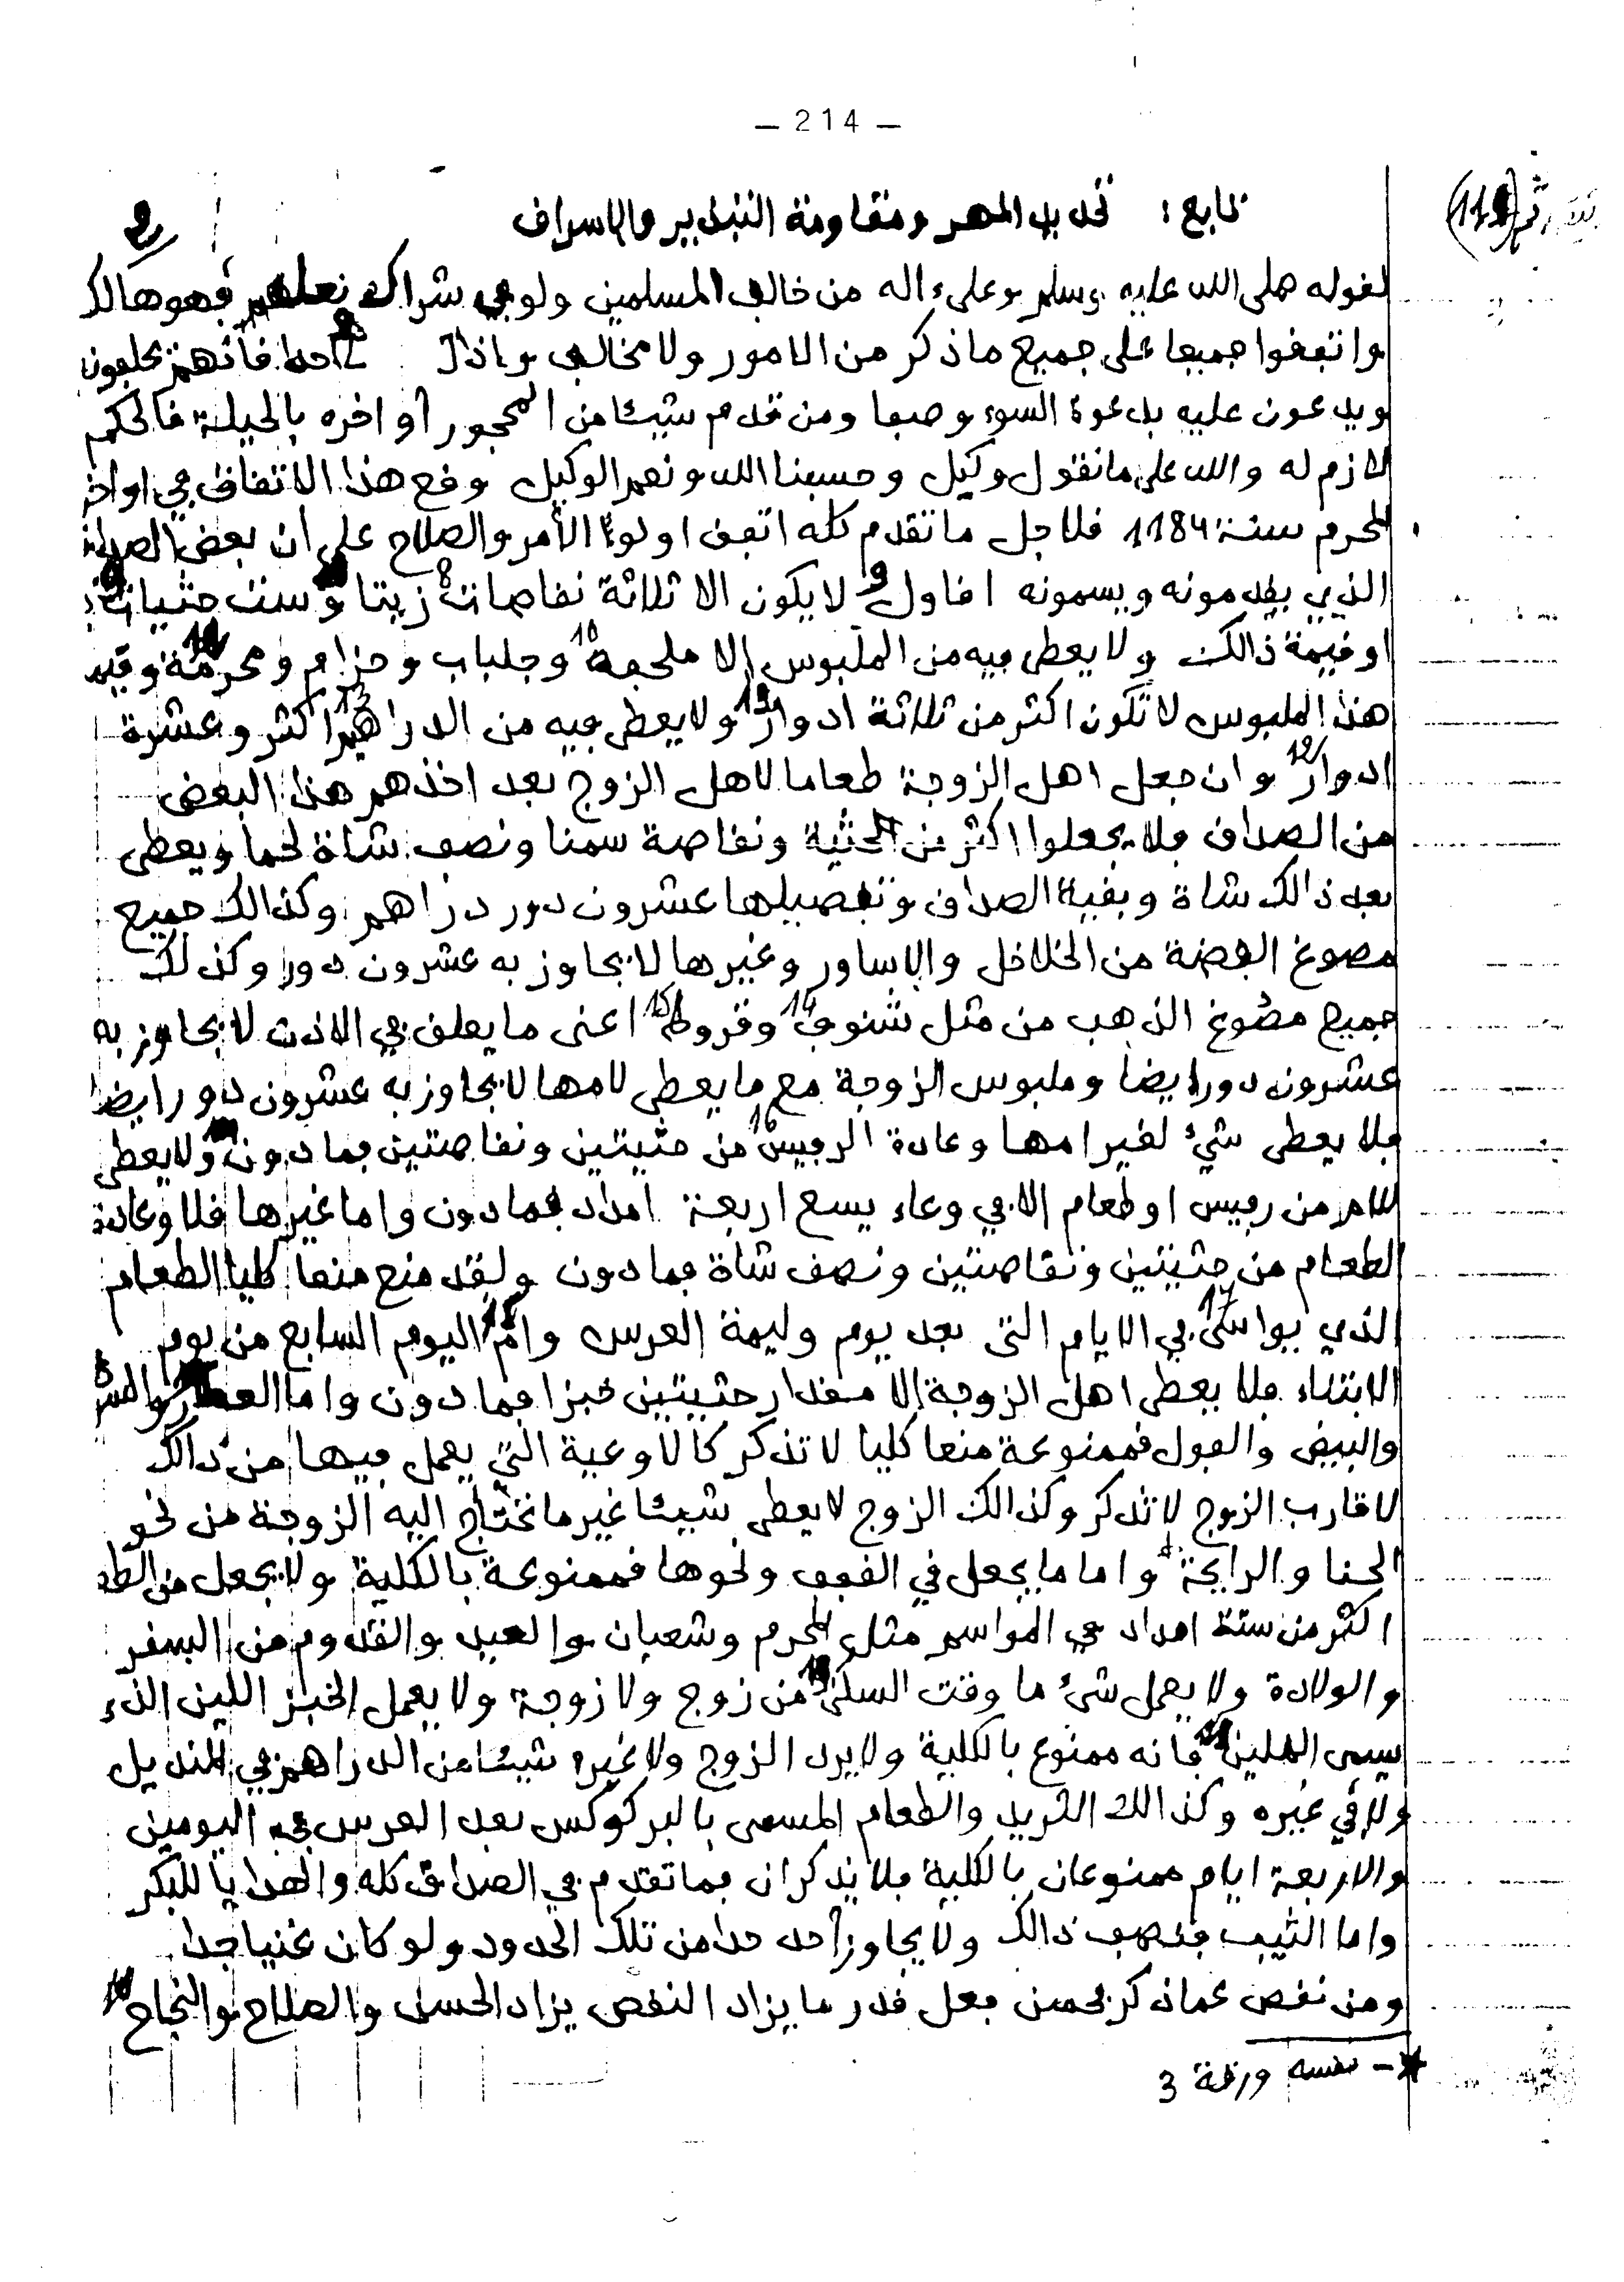 — 214 —
تابع : تحديد المهر ومقاومة التبذير والاسراف
لقوله صلى الله عليه وسلم وعلى ءاله من خالف المسلمين ولو في شراك نعلهم فهو هالك
واتفقوا جميعا على جميع ما ذكر من الامور ولا مخالف واذا احد فانهم يحلفون
ويدعون عليه بدعوة السوء وصفا ومن قدم شيئا من المحجور أو اخره بالحيلة فالحكم
لازم له والله على ما نقول وكيل وحسبنا الله ونعم الوكيل وقع هذا الاتفاق في اواخر
المحرم سنة 1184 فلاجل ما تقدم كله اتفق اولوا الأمر والصلاح على ان بعض الصداق
الذي يقدمونه ويسمونه افاول 9 لا يكون الا ثلاثة نفاصات 8 زيتا وست حثيات
او قيمة ذالك ولا يعطى فيه من الملبوس إلا ملحفة 10 وجلباب وحزام ومحرمة وقيمة
هذا الملبوس لا تكون اكثر من ثلاثة ادوار ولا يعطى فيه من الدراهم 13 اكثر وعشرة
ادوار 12 وان جعل اهل الزوجة طعاما لاهل الزوج بعد اخذهم هذا البعض
من الصداق فلا يجعلوا اكثر من الحثية ونفاصة سمنا ونصف شاة لحما ويعطى
بعد ذالك شاة وبقية الصداق وتفصيلها عشرون دور دراهم وكذالك جميع
مصوغ الفضة من الخلاخل والاساور وغيرها لا يجاوز به عشرون دورا وكذلك
جميع مصوغ الذهب من مثل شنوف 14 وقروط 15 اعنى ما يعلق في الاذن لا يجاوز به
عشرون دورا ايضا وملبوس الزوجة مع ما يعطى لامها لا يجاوز به عشرون دورا ايضا
فلا يعطى شيئ لغير امها وعادة الرفيس 16 من حثيتين ونفاصتين فما دون ولا يعطى
للام من رفيس او طعام الا في وعاء يسع اربعة امداد فما دون واما غيرها فلا وعادة
الطعام من حثيتين ونفاصتين ونصف شاة فما دون ولقد منع منعا كليا الطعام
الذي يواسى 17 في الايام التى بعد يوم وليمة العرس وامّا اليوم السابع من يوم
الابتداء فلا يعطى اهل الزوجة إلا مقدار حثيتين خبزا فما دون واما
والبيض والفول فممنوعة منعا كليا لا تذكر كالاوعية التي يعمل فيها من ذالك
لاقارب الزوج لا تذكر وكذالك الزوج لا يعطى شيئا غير ما تحتاج اليه الزوجة من نحو
الحنا والرايحة واما ما يجعل في القفف ونحوها فممنوعة بالكلية ولا يجعل من الطعام
اكثر من ستة امداد في المواسم مثل المحرم وشعبان والعيد والقدوم من السفر
والولادة ولا يعمل شئ ما وقت السكنى من زوج ولا زوجة ولا يعمل الخبز اللين الذي
يسمى الملين فانه ممنوع بالكلية ولا يرد الزوج ولا غيره شيئا من الدراهم في المنديل
ولا في غيره وكذالك الثريد والطعام المسمى بالبركوكس بعد العرس في اليومين
والاربعة ايام ممنوعان بالكلية فلا يذكران فما تقدم في الصداق كله والهدايا للبكر
واما الثيب فنصف ذالك ولا يجاوز أحد حدا من تلك الحدود ولو كان غنيا جدا
ومن نقص عما ذكر فحسن فعل قدر ما يزاد النقص يزاد الحسن والصلاح والنجاح
* - نفسه ورقة 3